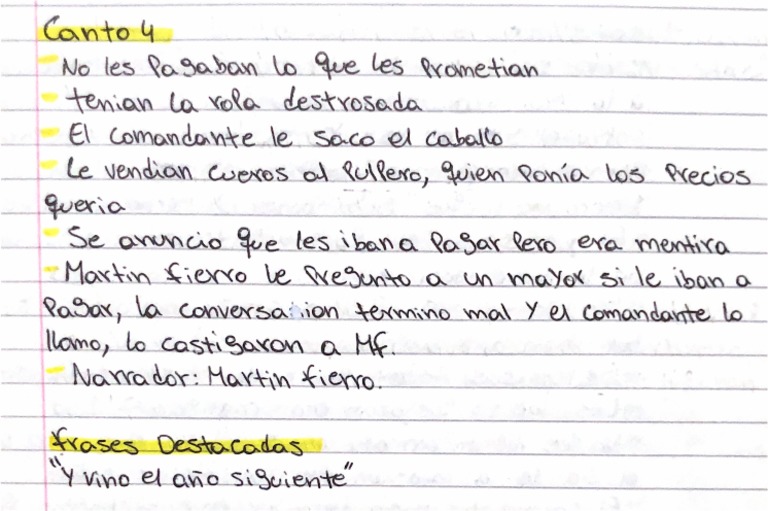 Canto 4
- No les Pagaban lo que les Prometian
- tenian la ropa destrosada
- El comandante le saco el caballo
- Le vendian cueros al Pulpero, quien Ponía los Precios
queria
- Se anuncio que les iban a Pagar Pero era mentira
- Martin fierro le Pregunto a un mayor si le iban a
Pagar, la conversasion termino mal Y el comandante lo
llamo, lo castigaron a Mf.
- Narrador: Martin fierro.
frases Destacadas
"Y vino el año siguiente"